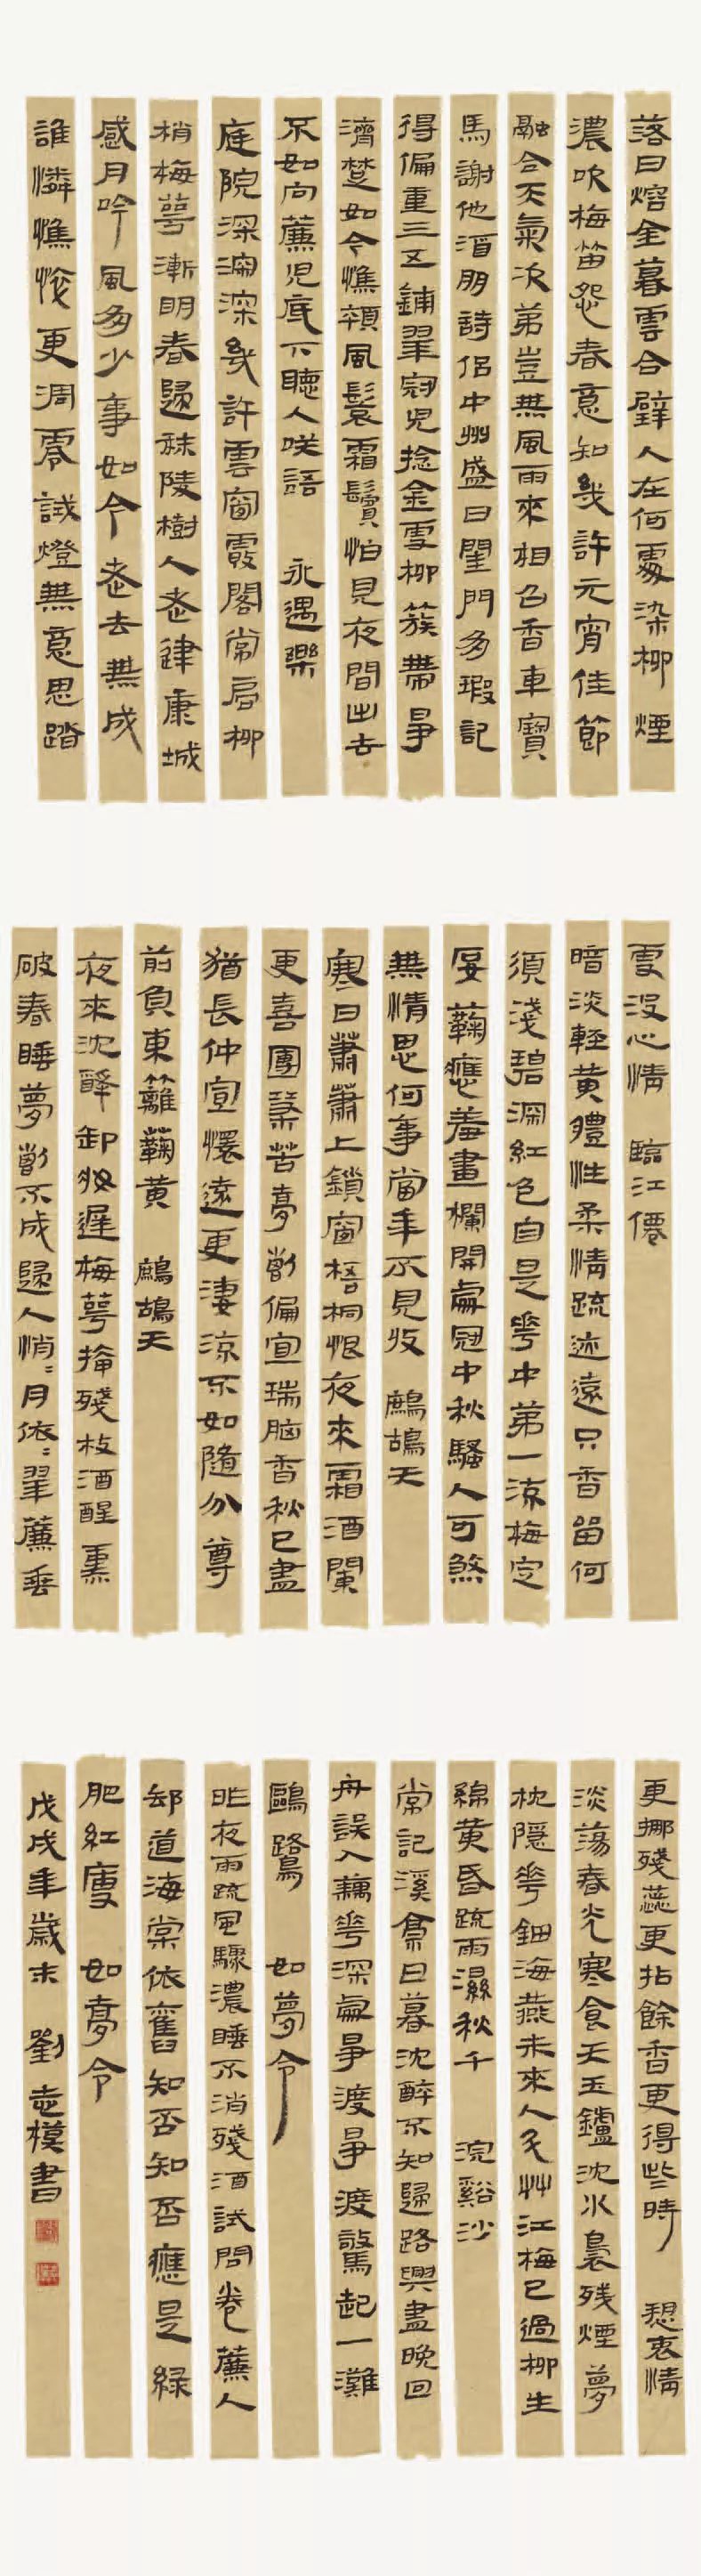 落日熔金暮雲合璧人在何處染柳煙
濃吹梅笛怨春意知幾許元宵佳節
融合天氣次第豈無風雨來相召香車寶
馬謝他酒朋詩侶中州盛日閨門多瑕記
得偏重三五鋪翠冠兒捻金雪柳簇帶爭
濟楚如今憔顇風鬟霜鬢怕見夜間出去
不如向薕兒底下聽人咲語 永遇樂
庭院深深深幾許雲窗霧閣常扃柳
梢梅萼漸明春歸秣陵樹人老建康城
感月吟風多少事如今老去無成
誰憐憔悴更凋零試燈無意思踏
雪沒心情 臨江僊
暗淡輕黃體性柔情疏迹遠只香留何
須淺碧深紅色自是華中第一流梅定
妒蘜應羞畫欄開處冠中秋騷人可煞
無情思何事當年不見收 鷓鴣天
寒日蕭蕭上鎖窗梧桐恨夜來霜酒闌
更喜團茶苦夢斷偏宜瑞腦香秋已盡
猶長仲宣懷遠更淒涼不如隨分尊
前負東籬蘜黃 鷓鴣天
夜來沈醉卸妝遲梅萼插殘枝酒醒熏
破春睡夢斷不成歸人悄=月依=翠薕垂
更挪殘蕊更拈餘香更得些時 愬衷情
淡蕩春光寒食天玉鑪沈水裊残煙夢
枕隱華鈿海燕未來人鬥艸江梅已過柳生
綿黃昏疏雨濕秋千 浣谿沙
常記溪亭日暮沈醉不知歸路興盡晚回
舟誤入藕華深處爭渡爭渡驚起一灘
鷗鷺 如夢令
昨夜雨疏風驟濃睡不消殘酒試問卷薕人
却道海棠依舊知否知否應是綠
肥紅瘦 如夢令
戊戌年歲末 劉志模書